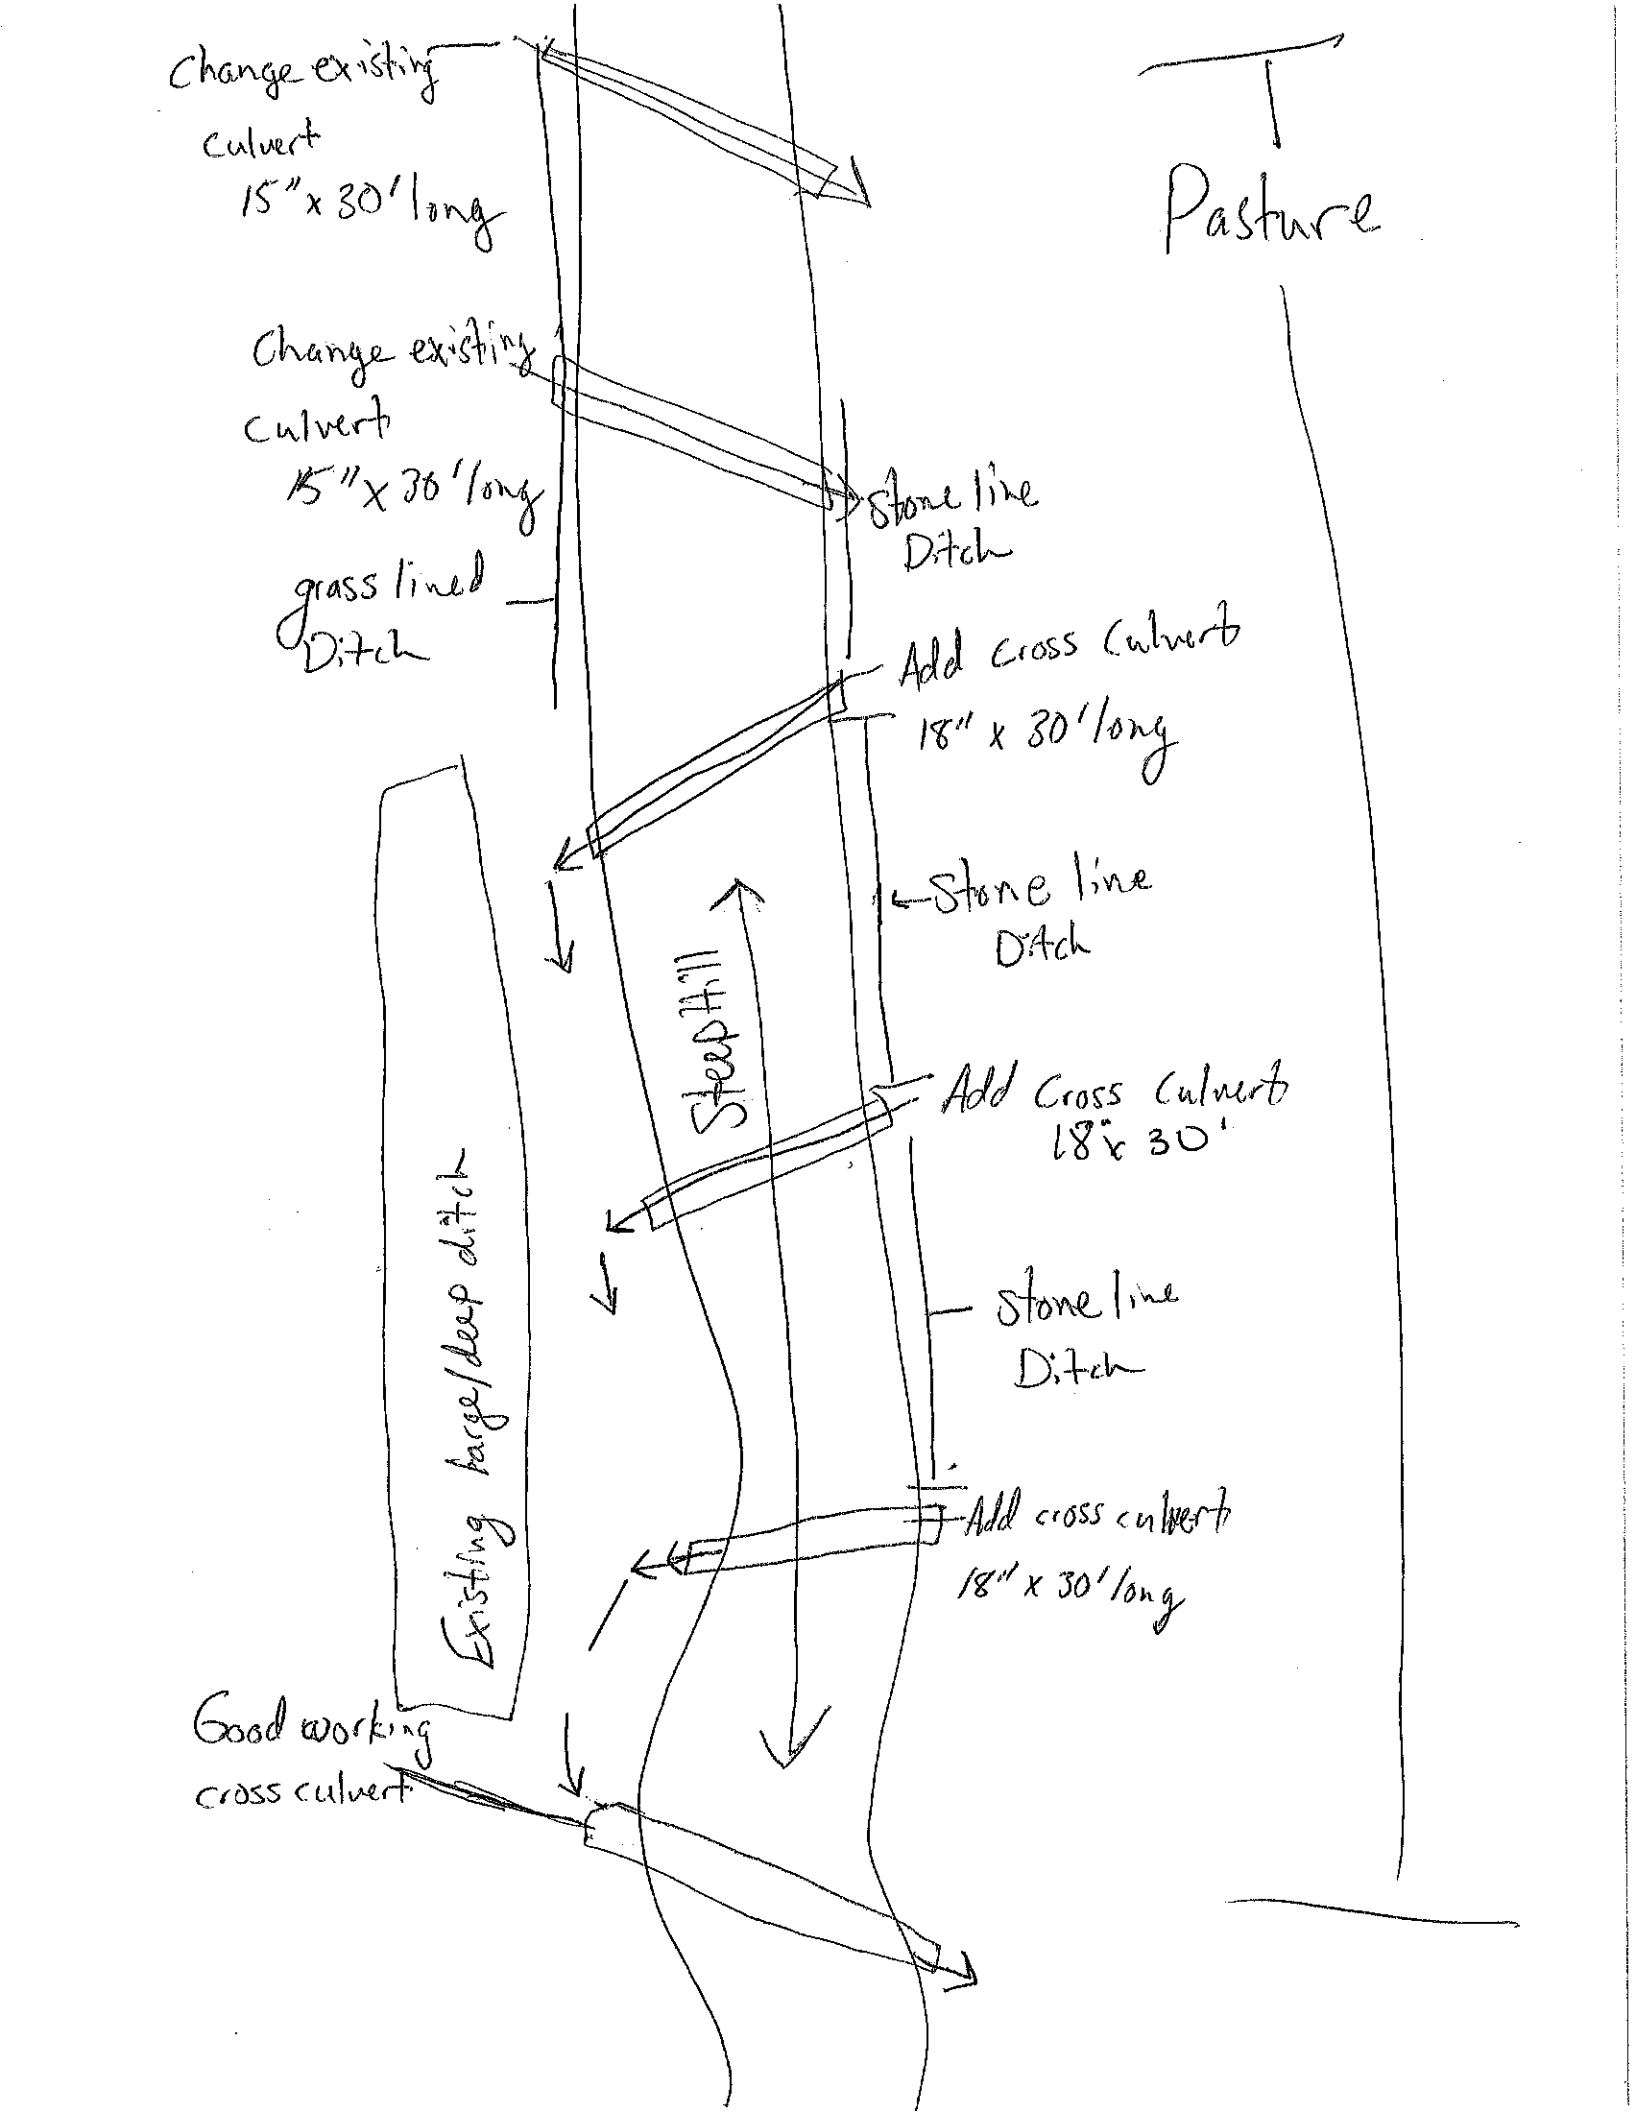 Change existing
Culvert
15" x 30' long
Pasture
Change existing
Culvert
15" x 30' long
Stone line
Ditch
grass lined
Ditch
Add cross Culvert
18" x 30' long
Stone line
Ditch
Steep Hill
Add Cross Culvert
18" x 30'
Existing large/deep ditch
Stone line
Ditch
Add cross culvert
18" x 30' long
Good working
cross culvert